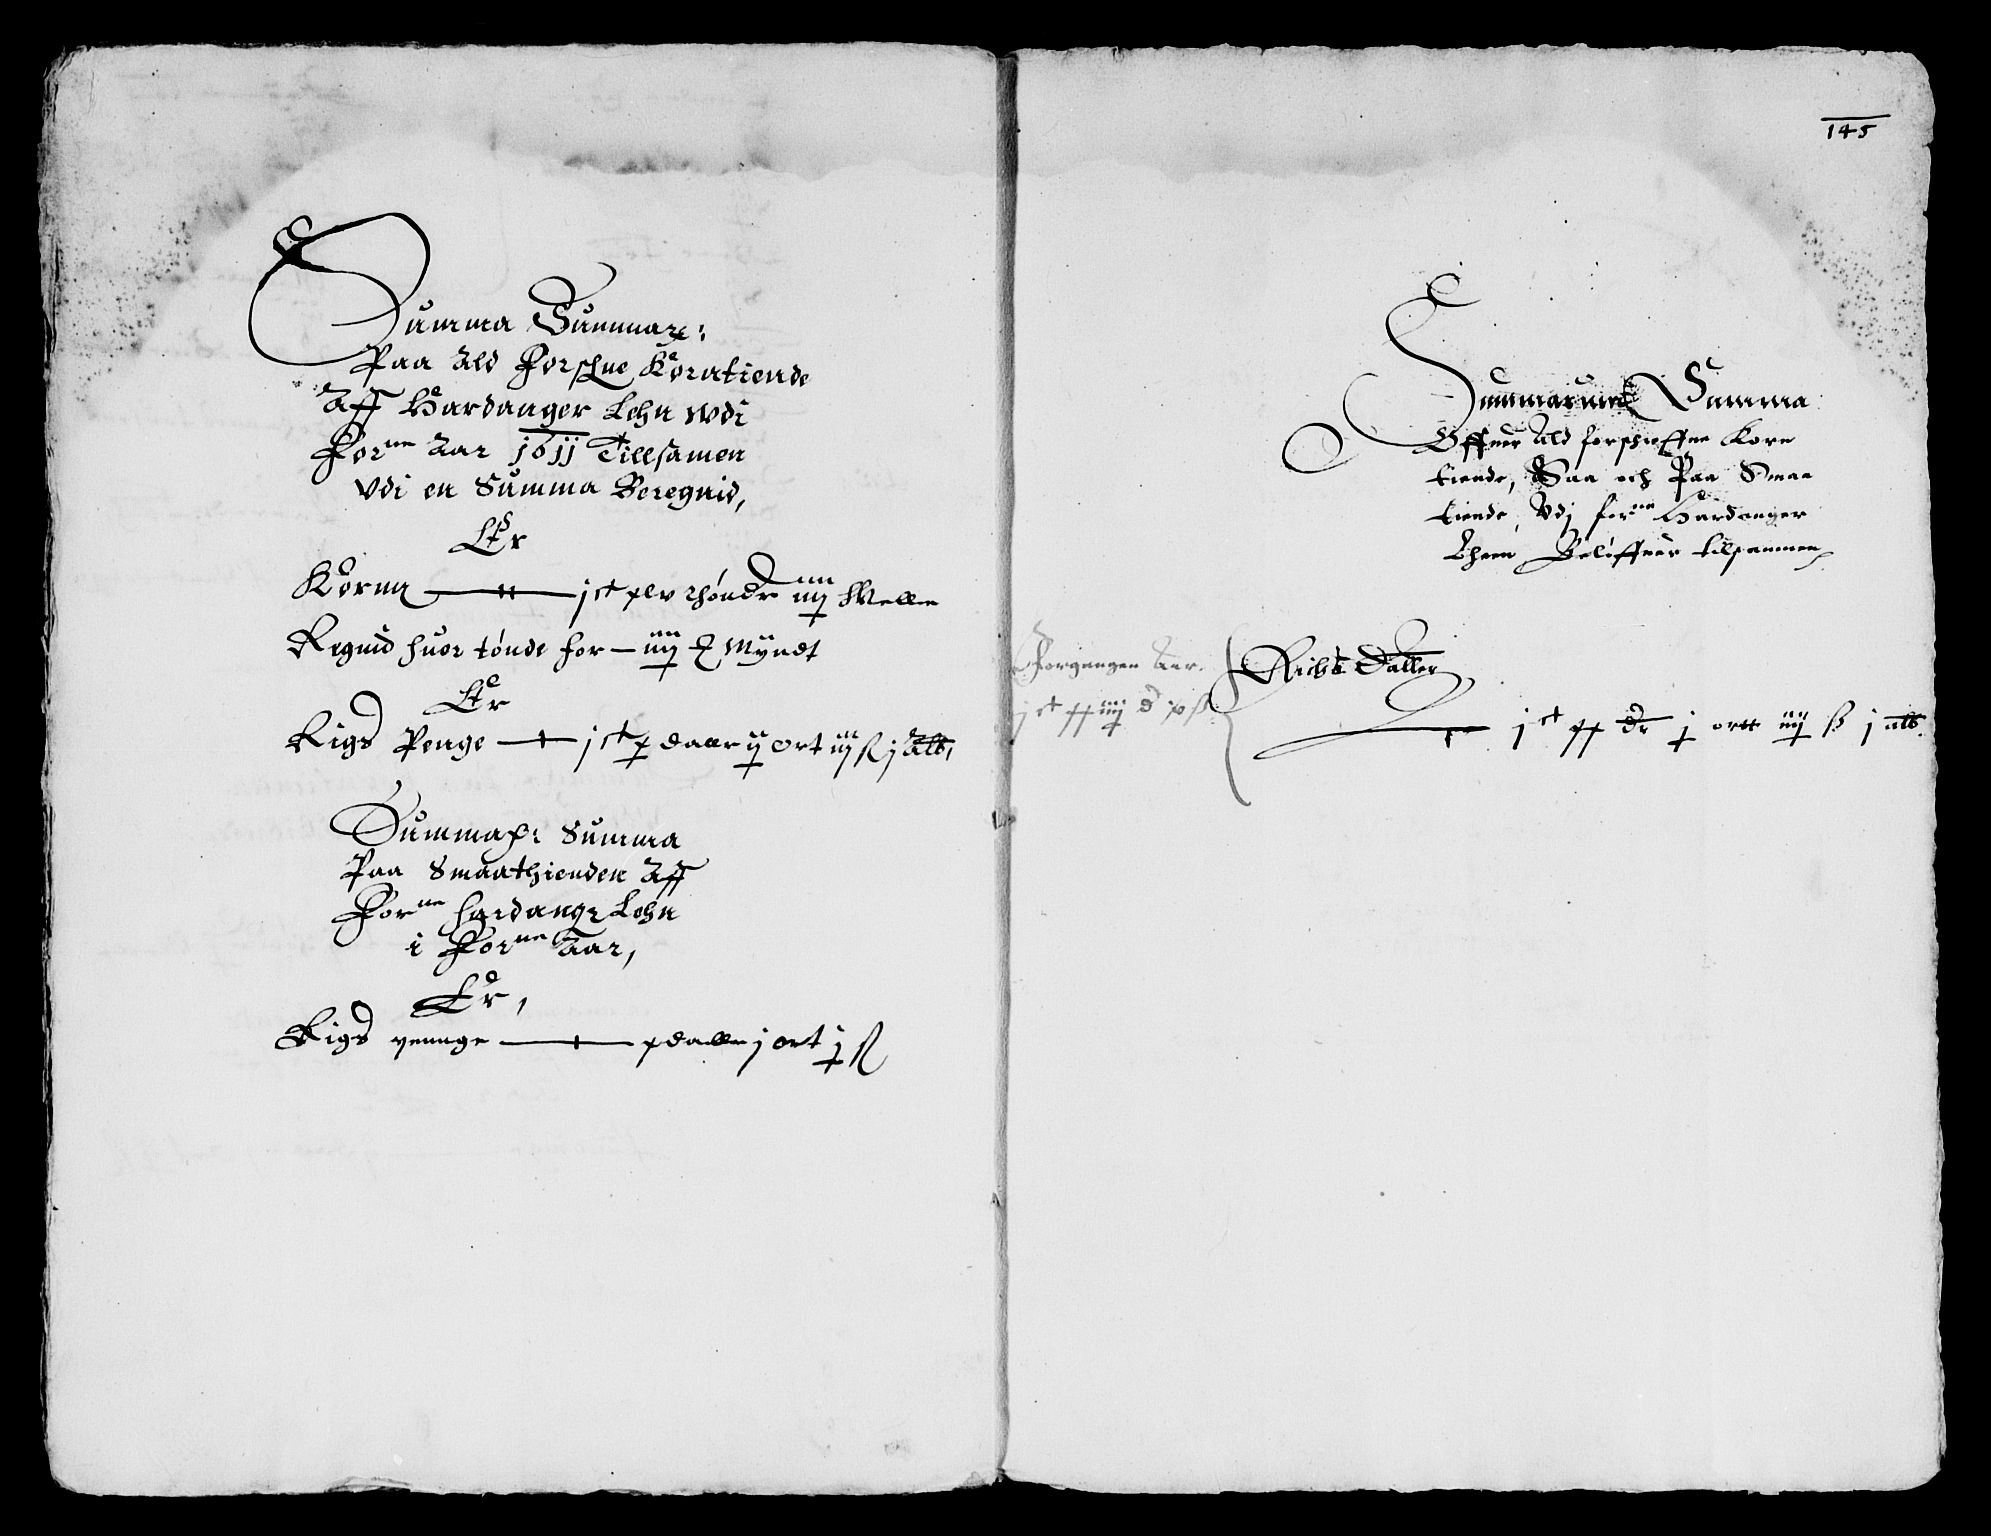 Summa Summar:
Paa Ald Forschne Korntiende
Aff Hardanger Lehn wdi
Forne Aar 1611 Tillsamen
Vdi en Summa Beregnid,
Er
Kornn — jct xlv thøndr iiij Mellee
Regnid huer tønde for — iiij ₰ Myndt
Er
Rigs Penge — jct x daller ij ort iij ß j alb,
Summar: Summa
Paa Smaathienden Aff
Forne Hardangr Lehn
i Forne Aar,
Er,
Rigs pennge — x daller j ort j ß
145
Summarum Summa
Offuer Ald forschreffne Korn
tiende, Saa och Paa Smaa
tiende, Vdj forne Hardanger
Lheen Beløffuer tilsammen
Forgangen Aar.
jct xx iiij d ß
Richs Daller
— jct xx dr j ortt iiij ß j alb.